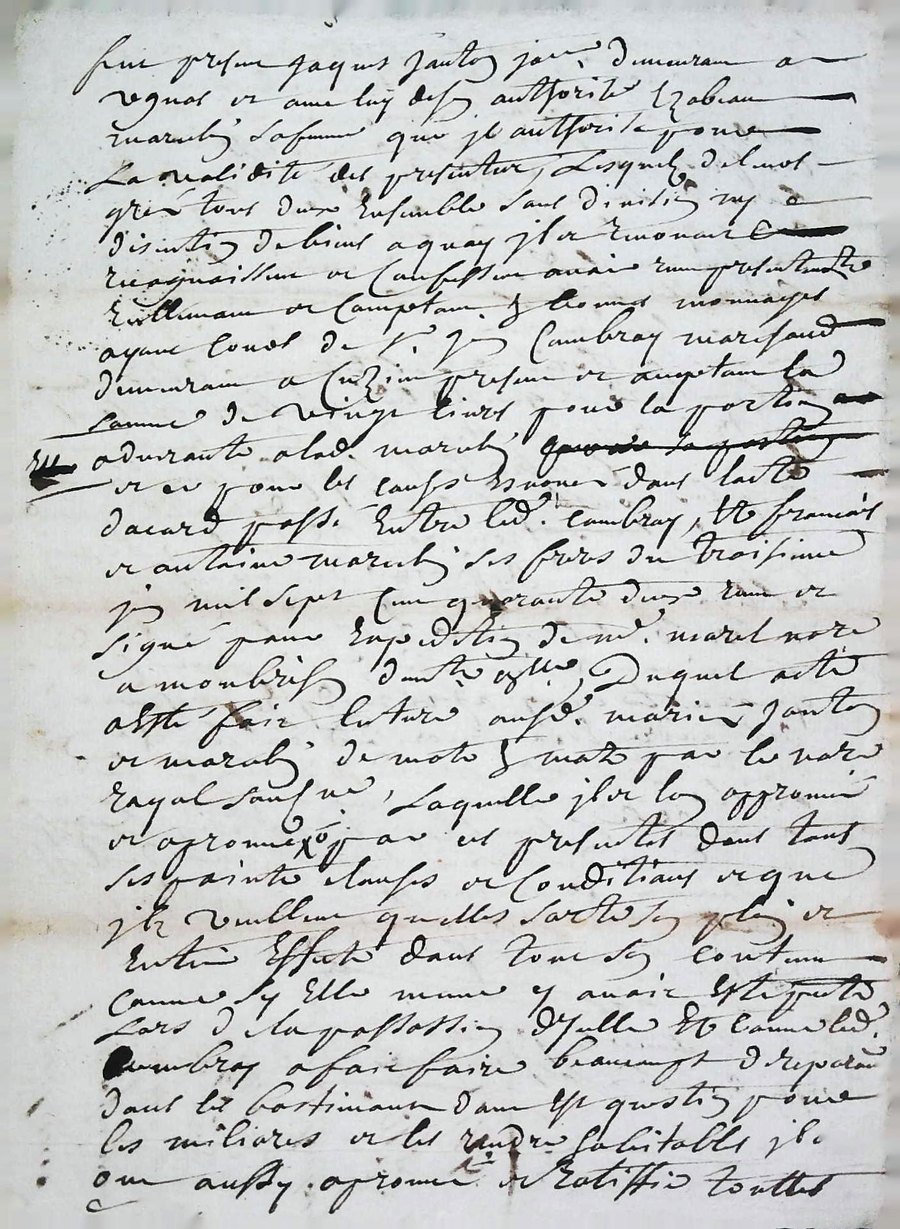 fut presant Jaques Janton jour. demeurant a
vgnas et avec luy de son authorité Izabeau
marcelin sa femme que jl authorise pour
La validité des presentes, Lesquels de leurs
grés tous deux Ensemble sans division ny
discution de biens a quoy jls et renoncé
recognaissent et Confessent avoir reeu presentemt
Réellement et Comptant En bonnes monnoyes
ayant Cours de Sr. Jean Cambray marchand
demeurant a presant et aceptant la
somme de vingt livres pour la portion
advenante a lad. marcelin
et ce pour les causes Enoncé dans lacte
dacord passé Entre led. Cambray, Et francois
et antoine marcelin ses freres du troisieme
jn mil sept Cent quarante deux reeu et
signé pour Expedition de me. morel nore
a montbrison dont té Duquel acte
a Esté fait lecture ausd. mariés Janton
et marcelin de mots En mots par le nore
royal sousne, Laquelle jls et lon approuvé
et aprouvent par ces presentes dans tous
ses points clauses et Conditions et que
jls veullent quelles sorte son plain et
Entier Effect dans tout son contenu
Comme sy Elle meme y avoit Esté
Lors de la passassion dycelle Et comme led.
Cambray a fait faire beaucoupt de reparaon
dans les bastimants dont Est question pour
les miliores et les randre habitable jls
ont aussy aprouvé et Ratiffié touttes